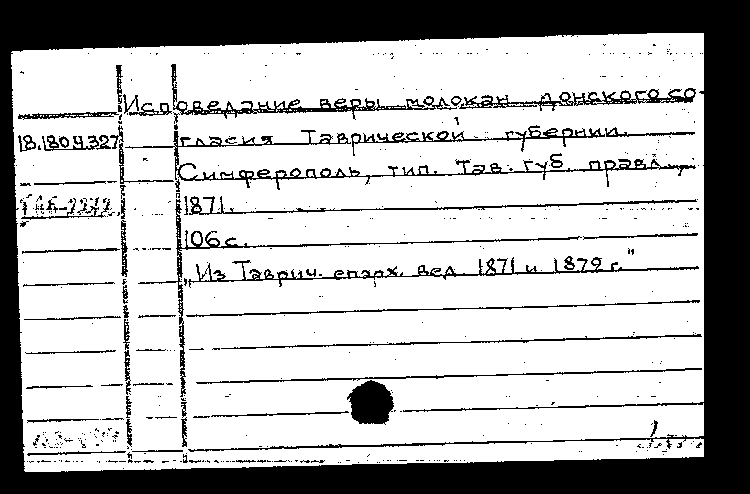 Исповедание веры молокан донского со-
18.180.4.327 гласия Таврической губернии.
Симферополь, тип. Тав. губ. правл.,
1871.
106 с.
„Из Таврич. епарх. вед. 1871 и 1879 г."